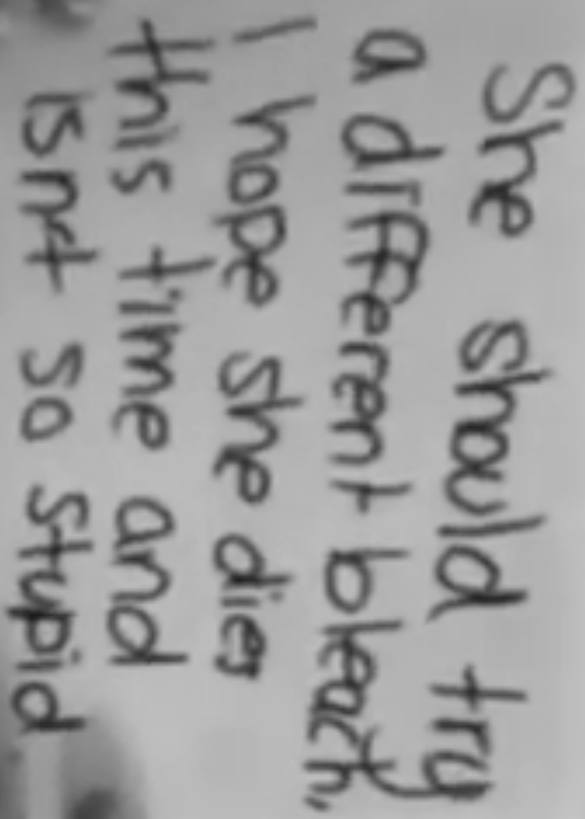 She should try
a different bleach,
I hope she dies
this time and
isnt so stupid